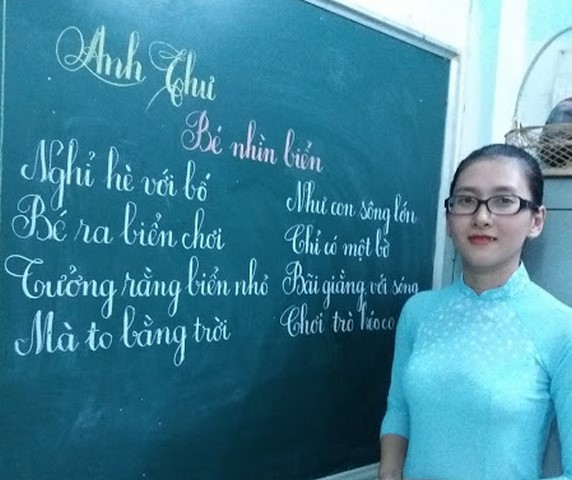 Anh Thư
Bé nhìn biển
Nghỉ hè với bố
Bé ra biển chơi
Tưởng rằng biển nhỏ
Mà to bằng trời
Như con sông lớn
Chỉ có một bờ
Bãi giằng với sóng
Chơi trò kéo co